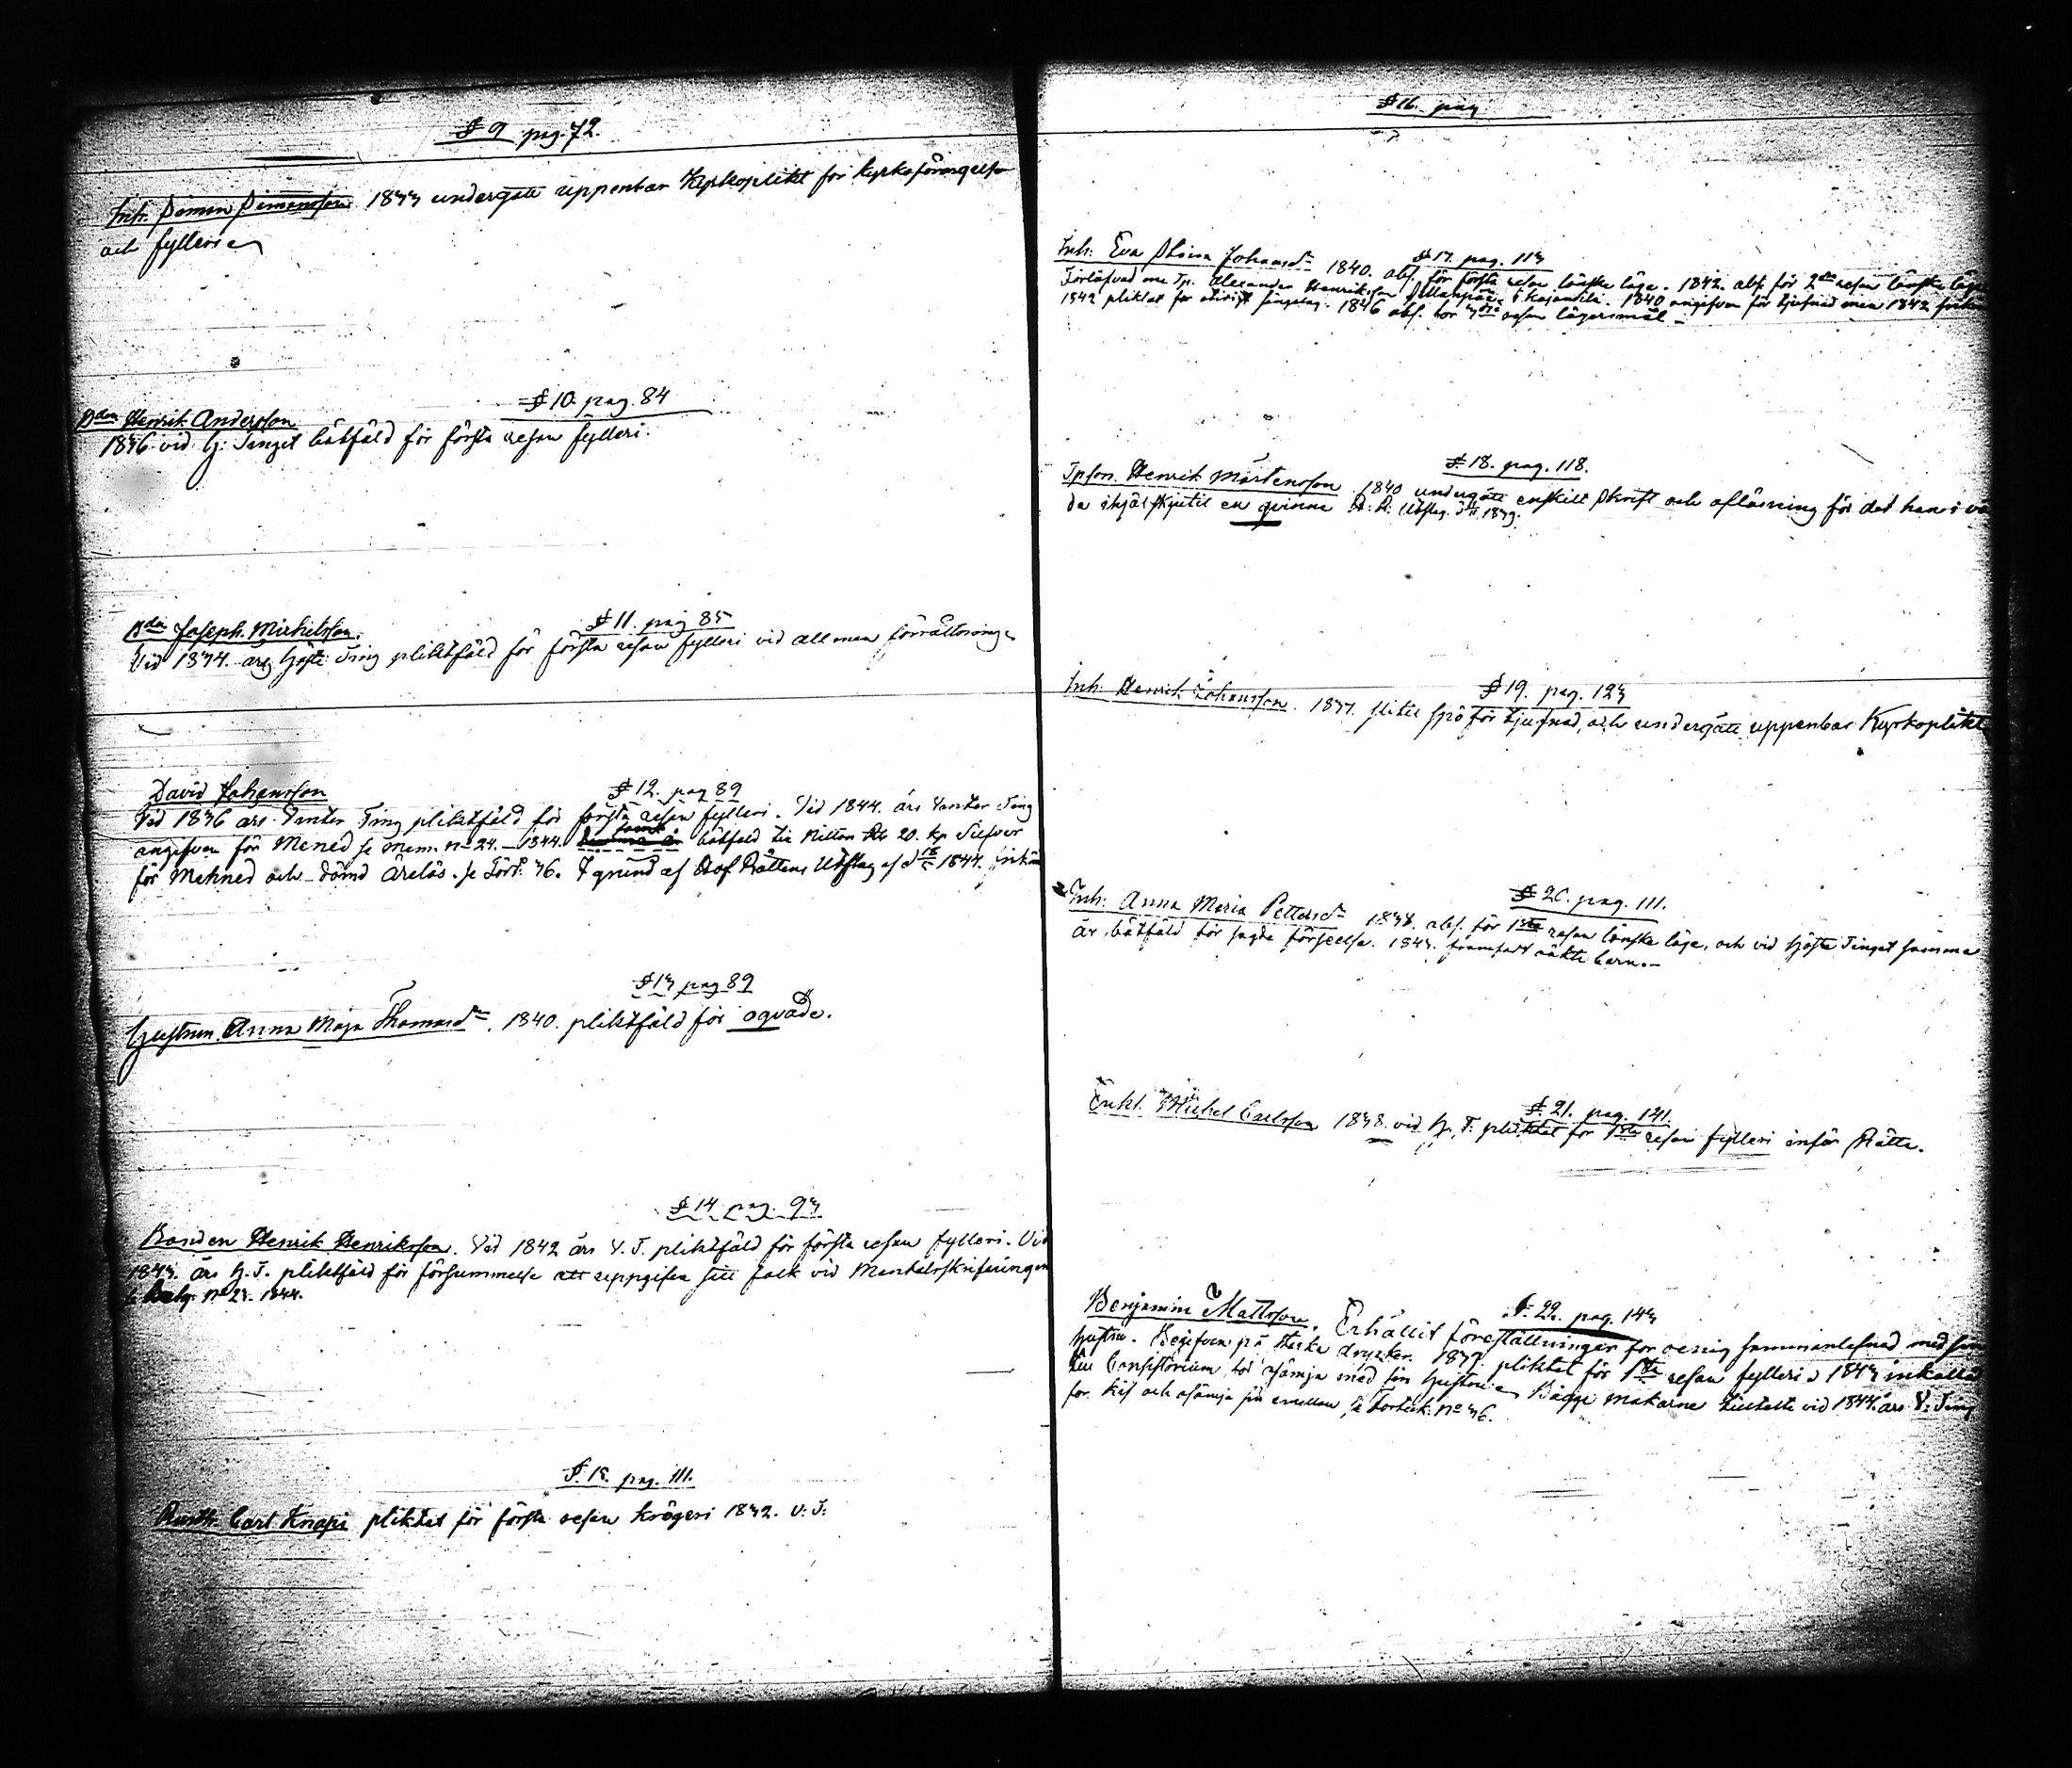 § 9 pag. 72.
Inh. Simon Simonsson 1833 undergått uppenbar Kyrkoplikt för kyrkoförargelse
och fylleri
§ 10 pag. 84
Bdn Henrik Andersson
1836 vid H: Tinget bötfäld för första resan fylleri.
§ 11. pag 85
Bdn Joseph Michelsson.
Vid 1834. års Höste Ting pliktfäld för första resan fylleri vid allmän förrättning
§ 12. pag 89
David Johansson
Vid 1836 års Vinter Ting pliktfäld för första resan fylleri. Vid 1844. års Vinter Ting
angifven för Mened se Mem. No 24. 1844. samt bötfäld till Nitton Rb 20. kp Silfver
för Mehned och dömd ärelös. se Fört. 36. I grund af Hof Rättens Utslag af d 1844.
§ 13 pag 89
Hustrun Anna Maja Thomasdr. 1840. pliktfäld för oqväde.
§ 14 pag. 93
Bonden Henrik Henriksson. Vid 1842 års V. T. pliktfäld för första resan fylleri. Vid
1843. års H. T. pliktfäld för försummelse att uppgifva sitt folk vid Mantalsskrifningen
No 23. 1844.
§. 15. pag. 111.
Rusth. Carl Knapi pliktat för första resan krögeri 1832. V: T:
§ 16. pag
§ 17. pag. 113
Inh: Eva Stina Johansdr 1840. abs. för första resan lönske läge. 1842. abs för 2dra resan lönske läge
Förlofvad me Tp. Alexander Henriksson i 1840 angifven för tjufnad men 1842
1842 pliktat för olofligt 1846 abs. för 3dje resan lägersmål
§. 18. pag. 118.
Tpson. Henrik Mårtensson 1840 undergått enskilt Skrift och aflösning för det han i
da ihjäl skjutit en qvinna H: R: Utslag 1839.
§ 19. pag. 123
Inh. Henrik Johansson. 1837. slitit spö för tjufnad, och undergått uppenbar Kyrkoplikt
§ 20. pag. 111.
Inh: Anna Maria Pettersdr 1838. abs. för 1sta resan lönske läge, och vid Höste Tinget samma
år bötfäld för sagde förseelse. 1843. framfödt oäkta barn.
§. 21. pag. 141.
Enkl. Michel Carlsson 1838. vid H. T. pliktat för 1sta resan fylleri inför Rätta.
§. 22. pag. 143
Benjamin Mattsson. Erhållit föreställningar för oenig sammanlefnad med sin
hustru. Begifven på starka drycker. 1837. pliktat för 1sta resan fylleri 1843 inkallad
till Consistorium för osämja med sin hustru Bägge makarne tilltalte vid 1844. års V: Ting
för kif och osämja sin emellan se Förteck: No 36.